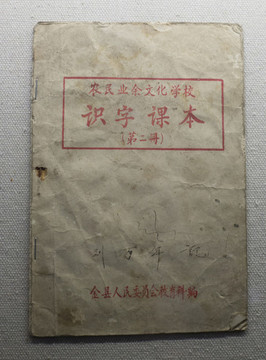 农民业余文化学校
识字课本
(第二册)
全县人民委员会教育科编